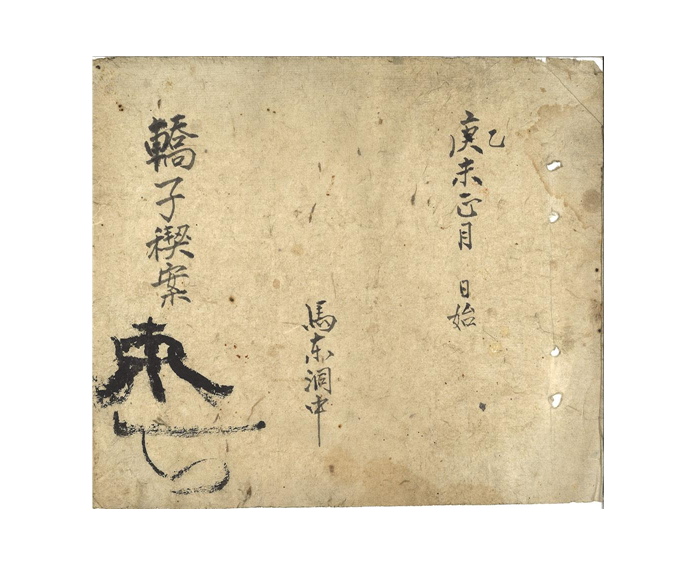 庚乙未正月 日始
馬東洞中
轎子稧案